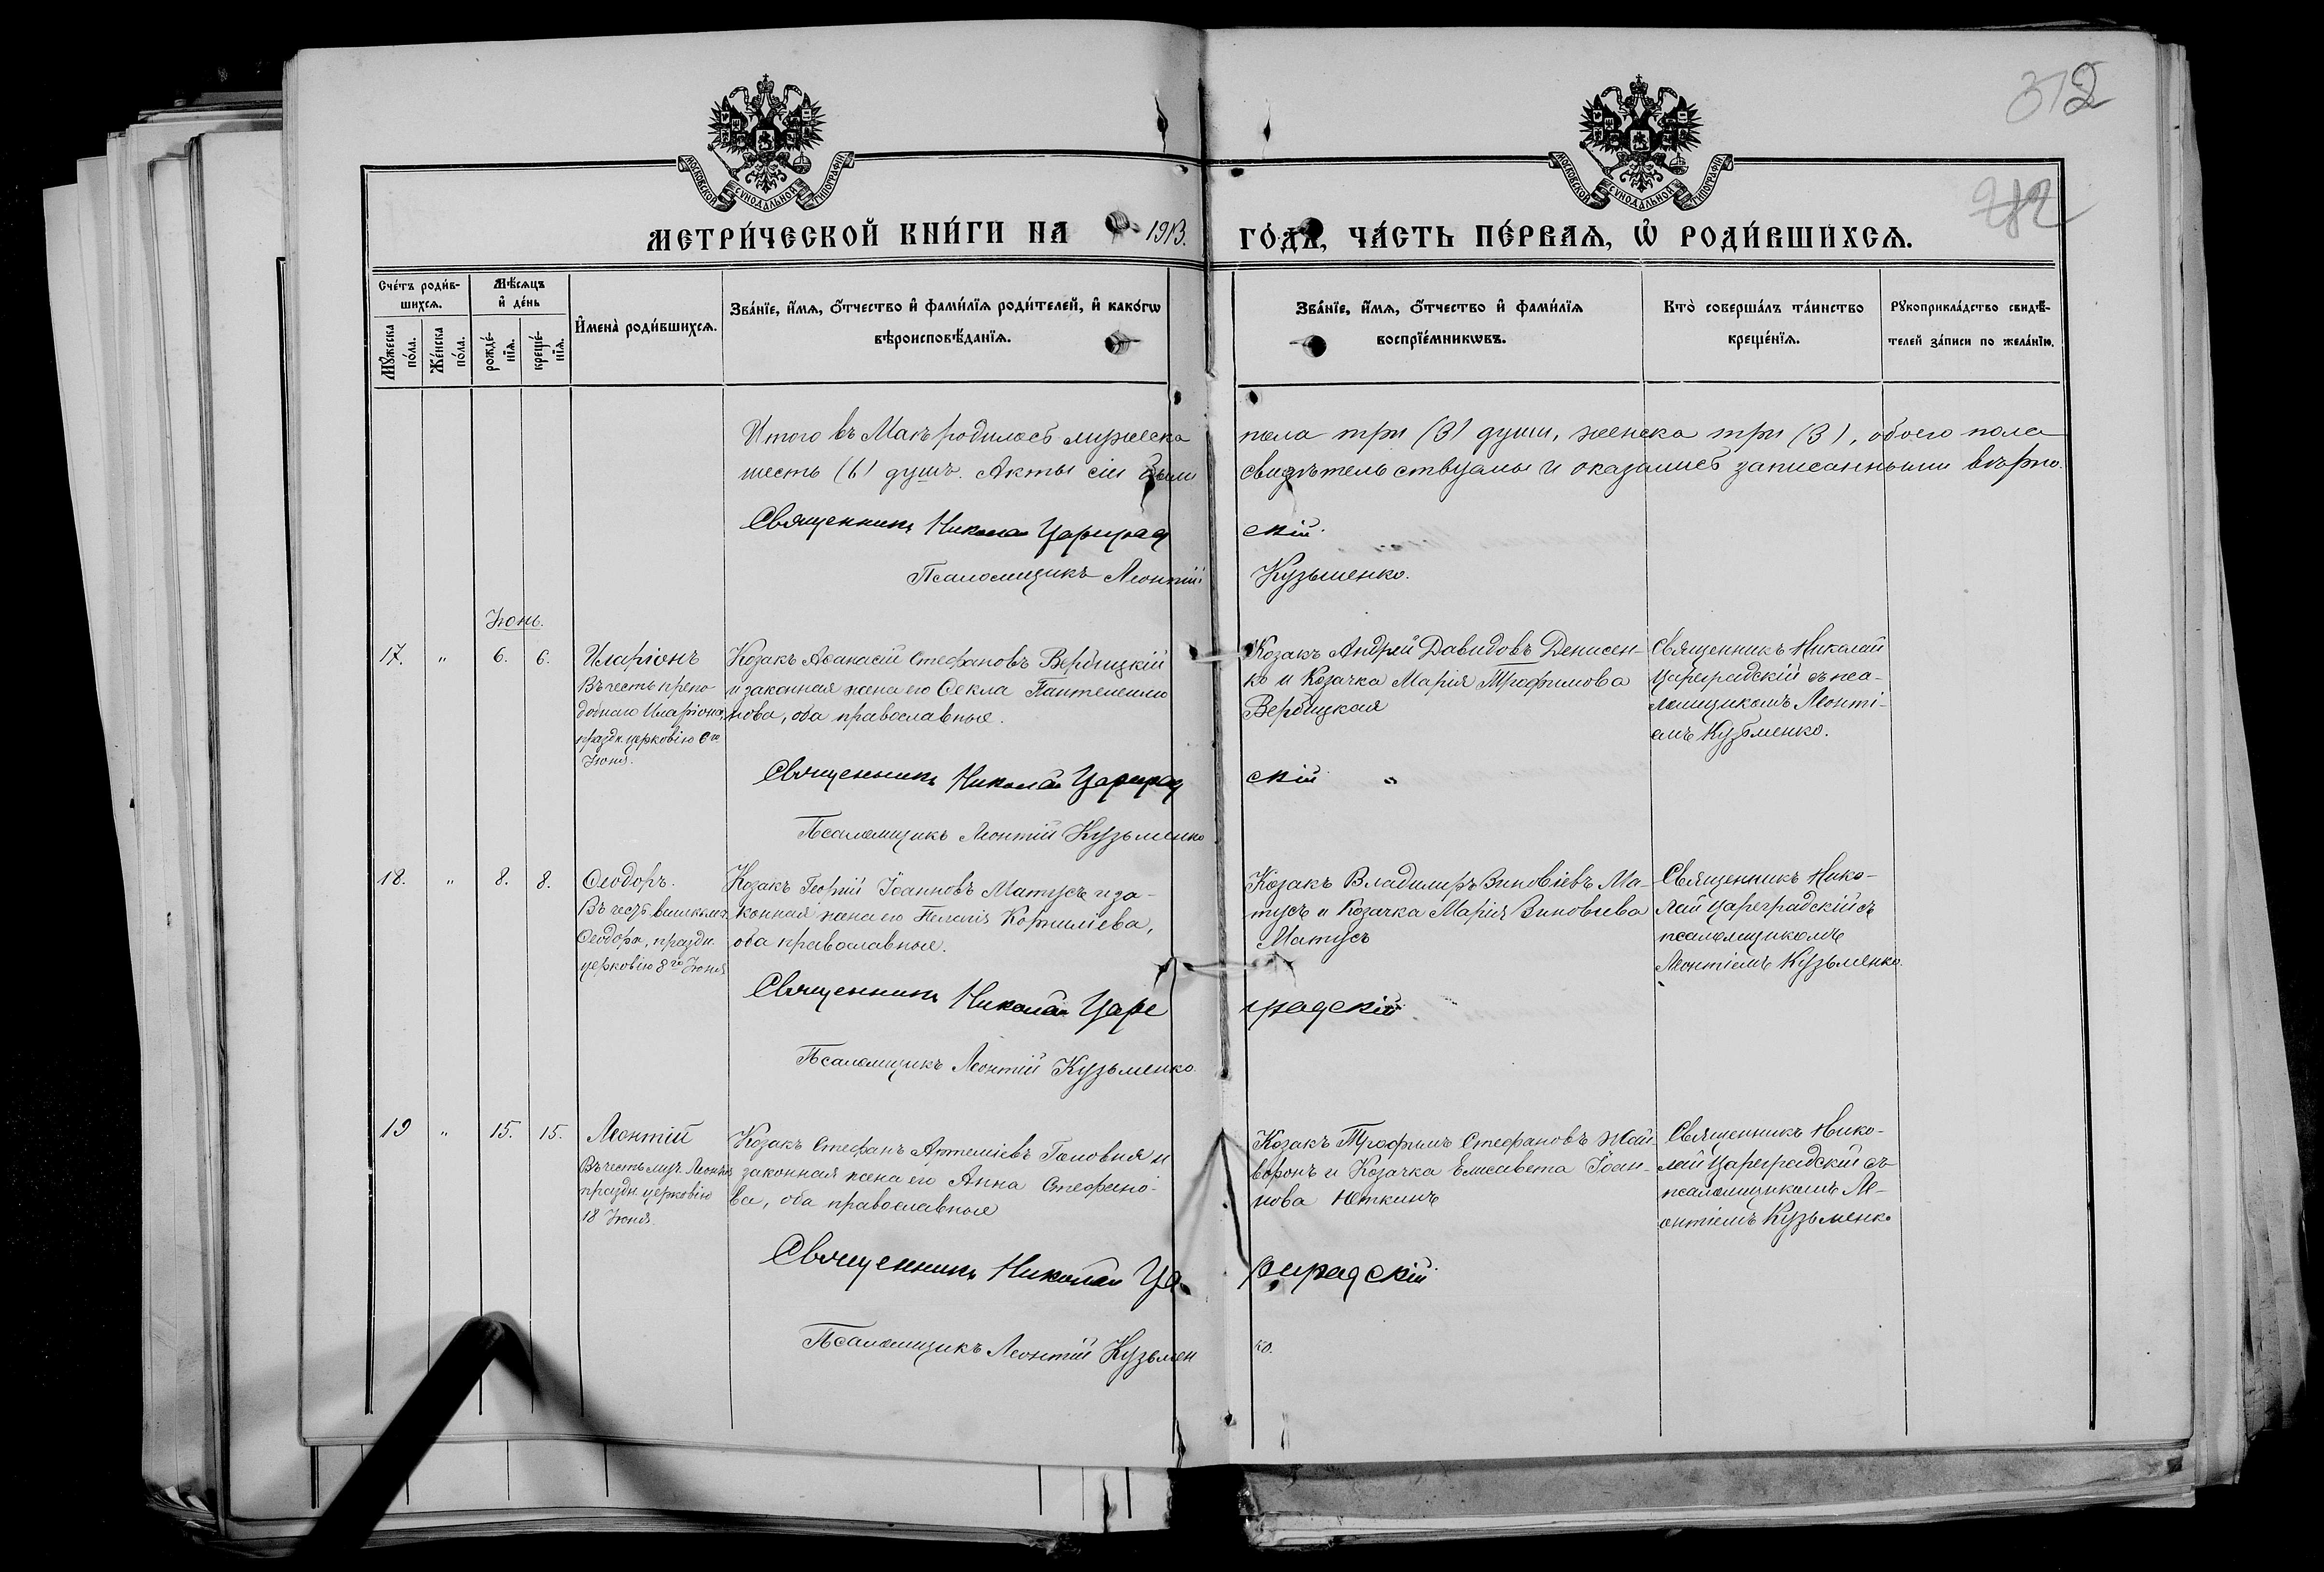 312
МОСКОВСКОЙ СѴНОДАЛЬНОЙ ТИПОГРАФІИ
МОСКОВСКОЙ СѴНОДАЛЬНОЙ ТИПОГРАФІИ
МЕТРИ́ЧЕСКОЙ КНИ́ГИ НА 1913. ГО́ДЪ, ЧА́СТЬ ПЕ́РВАѦ, Ѡ҆ РОДИ́ВШИХСѦ.
Сче́тъ роди́в-
шихсѧ.
Мꙋ́жеска по́ла.
Же́нска по́ла.
Мѣ́сѧцъ и҆ де́нь
рожде́-нїѧ.
креще́-нїѧ.
И҆мена̀ роди́вшихсѧ.
Зва́нїе, и҆́мѧ, ѻ҆́тчество и҆ фами́лїѧ роди́телей, и҆ како́гѡ
вѣроисповѣ́данїѧ.
Зва́нїе, и҆́мѧ, ѻ҆́тчество и҆ фами́лїѧ
воспрїе́мникѡвъ.
Кто̀ соверша́лъ та́инство
креще́нїѧ.
Рꙋкоприкла́дство свидѣ́-
телей за́писи по жела́нїю.
Итого въ Маѣ родилось мужеска пола три (3) души, женска три (3), обоего пола
шесть (6) душъ. Акты сіи были свидѣтельствуемы и оказались записанными вѣрно.
Священникъ Николай Цареградскій
Псаломщикъ Леонтій Кузьменко.
Іюнь.
17. " 6. 6. Иларіонъ
Въ честь препо-
добнаго Иларіона,
праздн. церковію 6го
Іюня.
Козакъ Аѳанасій Стефановъ Вербицкій
и законная жена его Ѳекла Пантелеимо
нова, оба православные.
Козакъ Андрей Давидовъ Денисен
ко и Козачка Марія Трофимова
Вербицкая
Священникъ Николай
Цареградскій съ пса-
ломщикомъ Леонті-
емъ Кузьменко.
Священникъ Николай Цареградскій "
Псаломщикъ Леонтій Кузьменко
18. " 8. 8. Ѳеодоръ.
Въ честь великом.
Ѳеодора, праздн.
церковію 8го Іюня
Козакъ Георгій Іоанновъ Матусъ и за-
конная жена его Пелагія Корниліева,
оба православные.
Козакъ Владимиръ Зиновіевъ Ма-
тусъ и Козачка Марія Зиновіева
Матусъ
Священникъ Нико-
лай Цареградскій съ
псаломщикомъ
Леонтіемъ Кузьменко.
Священникъ Николай Цареградскій
Псаломщикъ Леонтій Кузьменко.
19 " 15. 15. Леонтій
Въ честь муч. Леонтія
праздн. церковію
18 Іюня.
Козакъ Стефанъ Артеміевъ Головня и
законная жена его Анна Стефано-
ва, оба православные
Козакъ Трофимъ Стефановъ Жай-
воронъ и Козачка Елисавета Іоан-
нова Юткинъ
Священникъ Нико-
лай Цареградскій съ
псаломщикомъ Ле-
онтіемъ Кузьменко
Священникъ Николай Цареградскій
Псаломщикъ Леонтій Кузьменко.